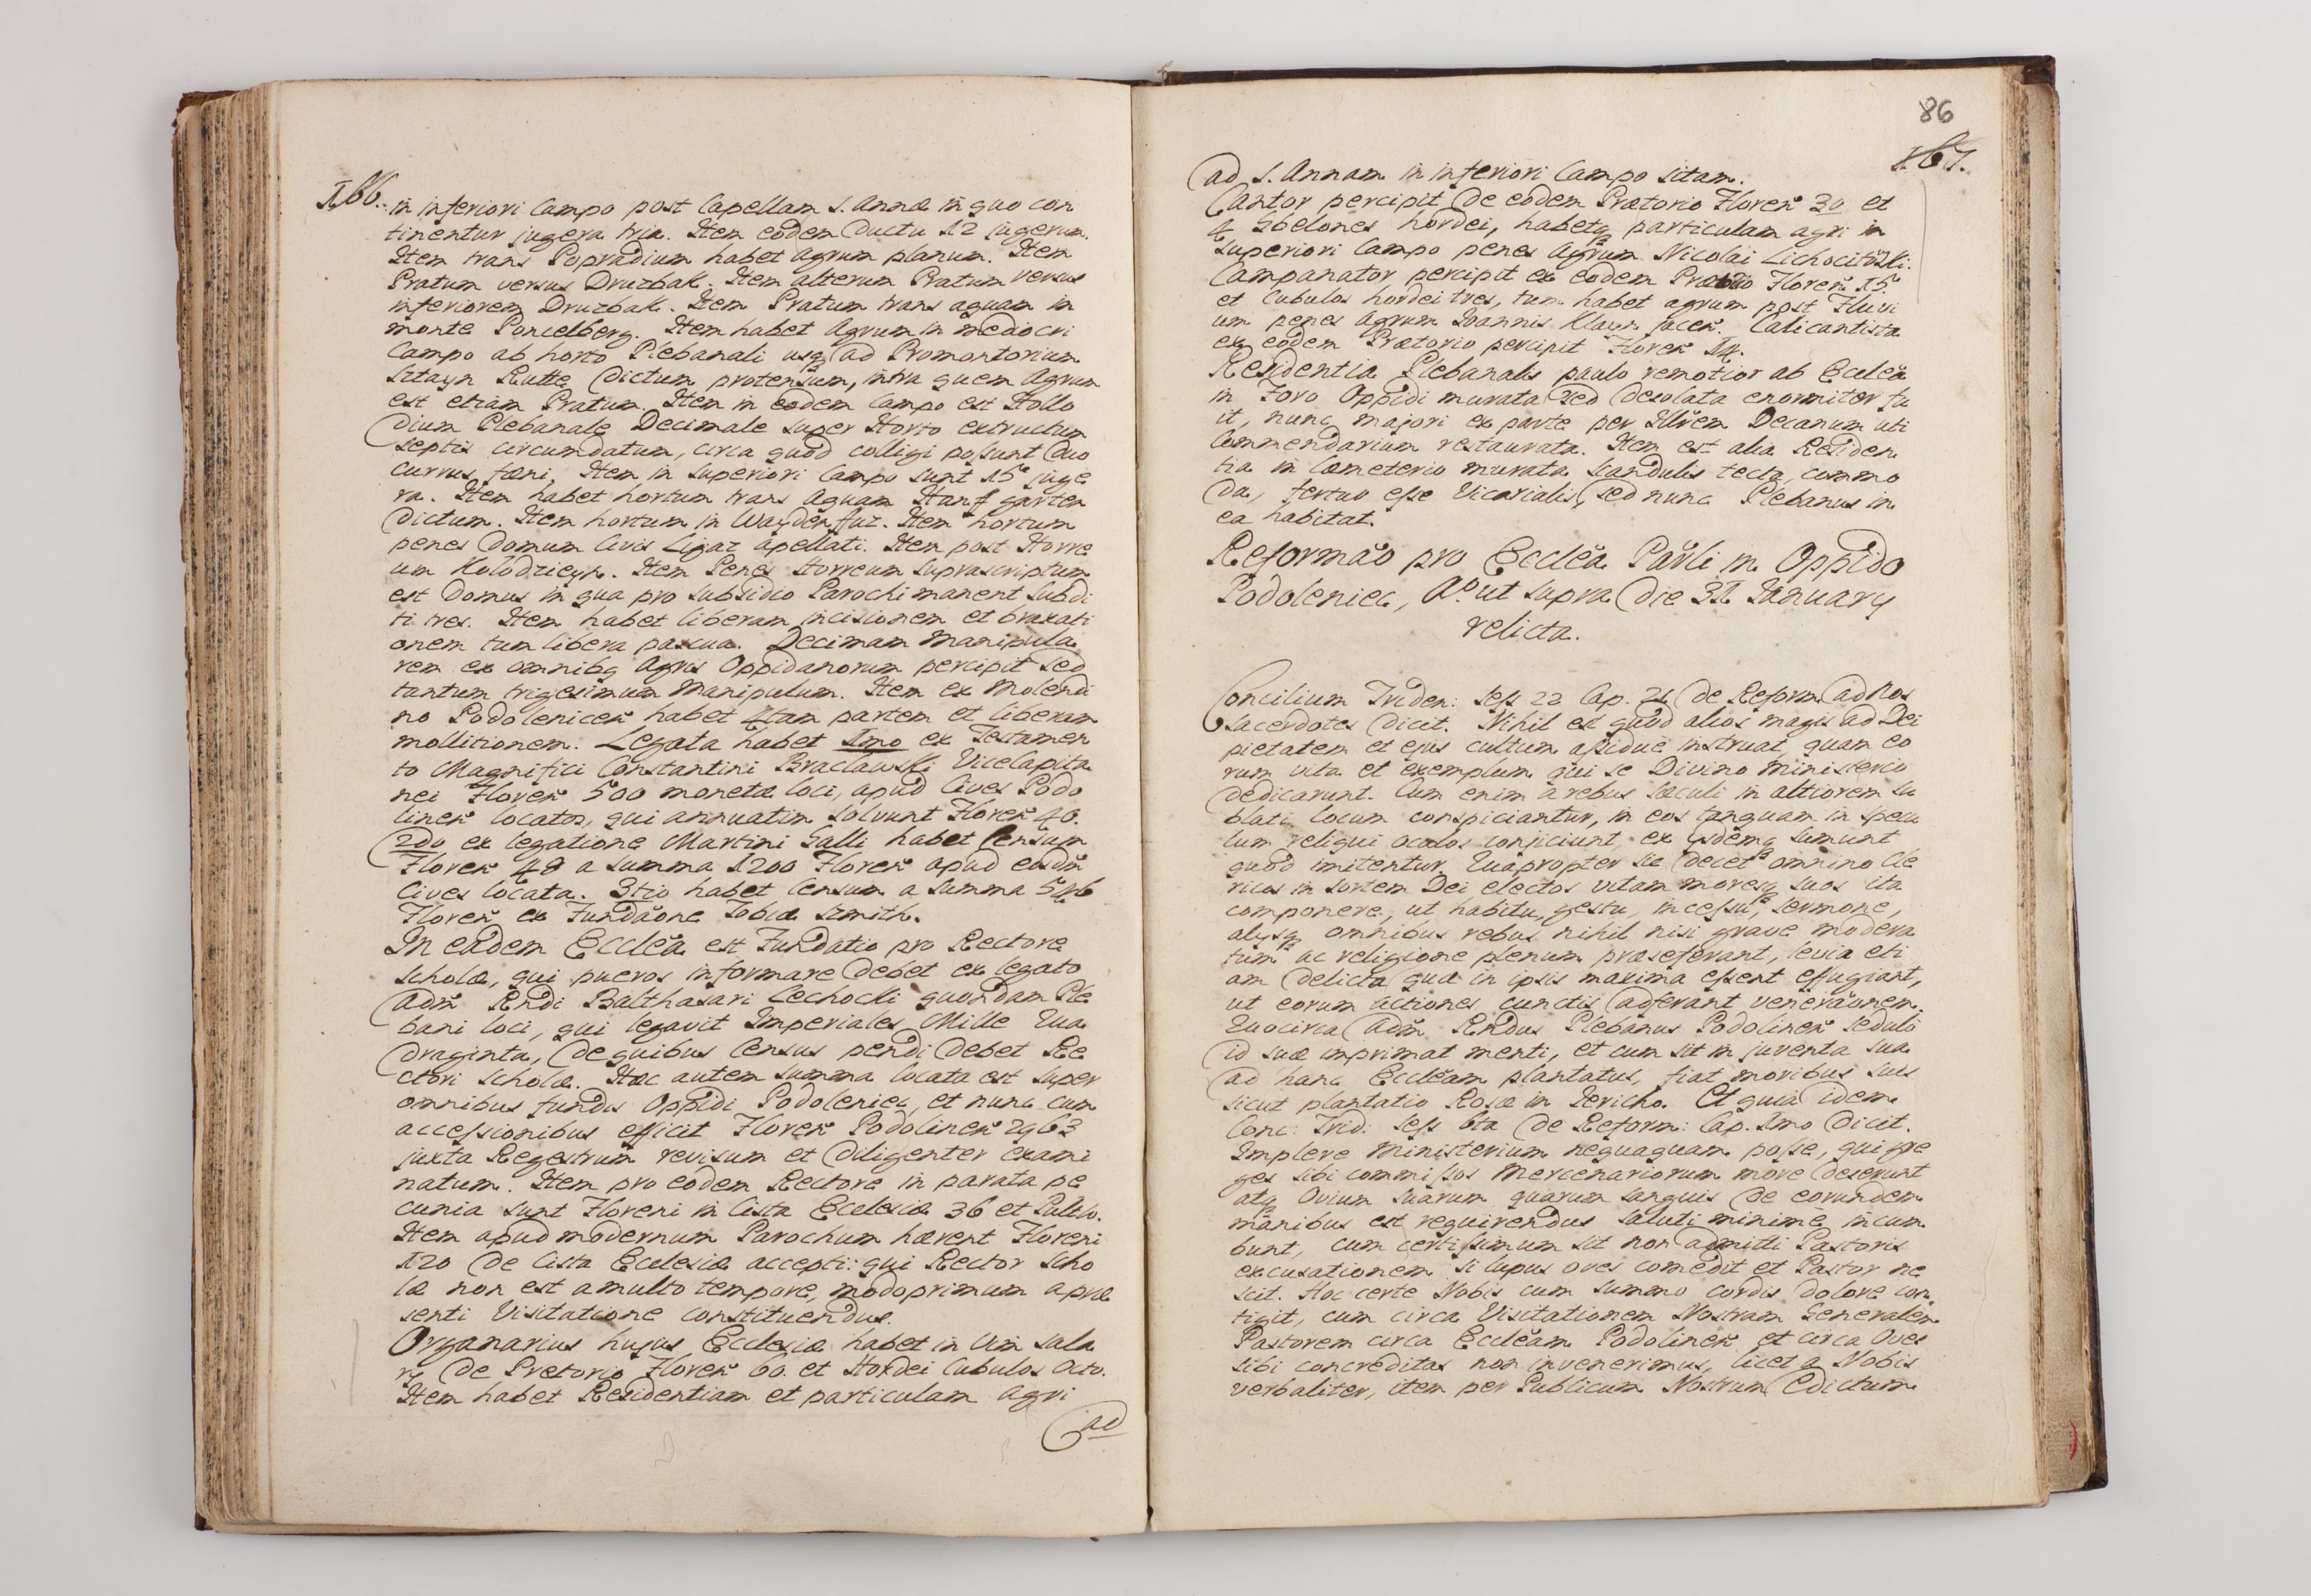 166.
in inferiori Campo post Capellam S. Annæ in quo con
tinentur jugera tria. Item eodem Ductu 12 jugerum.
Item trans Popradium habet agrum planum. Item
Pratum versus Druzbak. Item alterum Pratum versus
inferiorem Druzbak. Item Pratum trans aquam in
monte Poncelberg. Item habet Agrum in mediocri
Campo ab horto Plebanali usq ad Promontorium
Sztayn Rutte Dictum protensum, intra quem Agrum
est etiam Pratum. Item in eodem Campo est Hollo
dium Plebanale Decimale super Horto extructum
septis circumdatum, circa quod colligi possunt duo
currus fæni. Item in superiori Campo sunt 15 juge
ra. Item habet hortum trans Aquam Hanff garten
Dictum. Item hortum in Item hortum
penes Domum Civis Ligaz apellati. Item post Horre
um Kolodzieyk. Item Penes Horreum supra scriptum
est Domus in qua pro subsidio Parochi manent subdi
ti tres. Item habet liberam incisionem et braxati
onem tum libera pascua. Decimam Manipula
rem ex omnibq Agris Oppidanorum percipit sed
tantum trigesimum Manipulum. Item ex Molendi
no Podolenicen habet 4tam partem et liberam
mollitionem. Legata habet 1mo ex Testamen
to Magnifici Constantini Braclawski ViceCapita
nei Floren 500 monetæ loci, apud Cives Podo
linen locatos, qui annuatim solvunt Floren 40.
2do ex legatione Martini Galli habet Censum
Floren 48 a summa 1200 Floren apud eosdm
Cives locata. 3tio habet Censum a summa 546
Floren ex Fundaone Tobiæ Szmith.
In eadem Ecclea est Fundatio pro Rectore
Scholæ, qui pueros informare Debet ex legato
Adm Rndi Balthasari Lechocki quondam Ple
bani loci, qui legavit Imperiales Mille Qua
draginta, de quibus Census pendi Debet Re
ctori Scholæ. Hæc autem summa locata est super
omnibus fundis Oppidi Podoleniec, et nunc cum
accessionibus efficit Floren Podolinen 2963
juxta Regestrum revisum et Diligenter exami
natum. Item pro eodem Rectore in parata pe
cunia sunt Floreni in Cista Ecclesiæ 36 et
Item apud modernum Parochum hærent Floreni
120 de Cista Ecclesiæ accepti: qui Rector Scho
læ non est a multo tempore, modo primum a præ
senti Visitatione constituendus.
Organarius hujus Ecclesiæ habet in vim sala
ry de Pretorio Floren 60. et Hordei Cubulos Octo.
Item habet Residentiam et particulam Agri
ad
86
167.
ad S. Annam in inferiori Campo sitam.
Cantor percipit de eodem Prætorio Floren 30 et
4 Gbelones hordei, habetq particulam agri in
superiori Campo penes Agrum Nicolai
Campanator percipit ex eodem Prætorio Floren 15
et Cubulos hordei tres, tum habet agrum post Fluvi
um penes Agrum Joannis Klayn jacen. Calicantista
ex eodem Prætorio percipit Floren
Residentia Plebanalis paulo remotior ab Ecclea
in Foro Oppidi murata sed Desolata enormiter fu
it, nunc majori ex parte per Decanum uti
Commendarium restaurata. Item est alia Residen
tia in Cæmeterio murata scandulis tecta, commo
da, fertur esse Vicarialis, sed nunc Plebanus in
ea habitat.
Reformao pro Ecclea Parli in Oppido
Podoleniec, Ao ut supra Die 31 January
relicta.
Concilium Triden: Sess 22 Cap. de Reform ad Nos
Sacerdotes dicit. Nihil est quod alios magis ad Dei
pietatem et ejus cultum assidue instruat, quam eo
rum vita et exemplum qui se Divino Ministerio
dedicarunt. Cum enim a rebus sæculi in altiorem su
blati locum conspiciantur, in eos tanquam in specu
lum reliqui oculos conjiciunt, ex ysdemq sumunt
quod imitentur. Quapropter sic decet omnino Cle
ricos in sortem Dei electos vitam moresq suos ita
componere, ut habitu, gestu, incessu, sermone,
alysq omnibus rebus nihil nisi grave modera
tum ac religione plenum præseferant, levia eti
am delicta quæ in ipsis maxima essent effugiant,
ut eorum actiones cunctis adferant veneraonem.
Quocirca Adm Rndus Plebanus Podolinen sedulo
id suæ imprimat menti, et cum sit in juventa sua
ad hanc Eccleam plantatus, fiat moribus suis
sicut plantatio Rosæ in Jericho. Et quia idem
Conc: Trid: Sess 6ta de Reform: Cap. 1mo dicit.
Implere Ministerium nequaquam posse, qui gre
ges sibi commissos Mercenariorum more deserunt
atq Ovium suarum quarum sanguis de eorundem
manibus est requirendus saluti minime incum
bunt, cum certissimum sit non admitti Pastoris
excusationem si lupus oves comedit et Pastor ne
scit. Hoc certe Nobis cum summo cordis dolore con
tigit, cum circa Visitationem Nostram Generalem
Pastorem circa Eccleam Podolinen et circa Oves
sibi concreditas non invenerimus, licet a Nobis
verbaliter, item per Publicum Nostrum Edictum